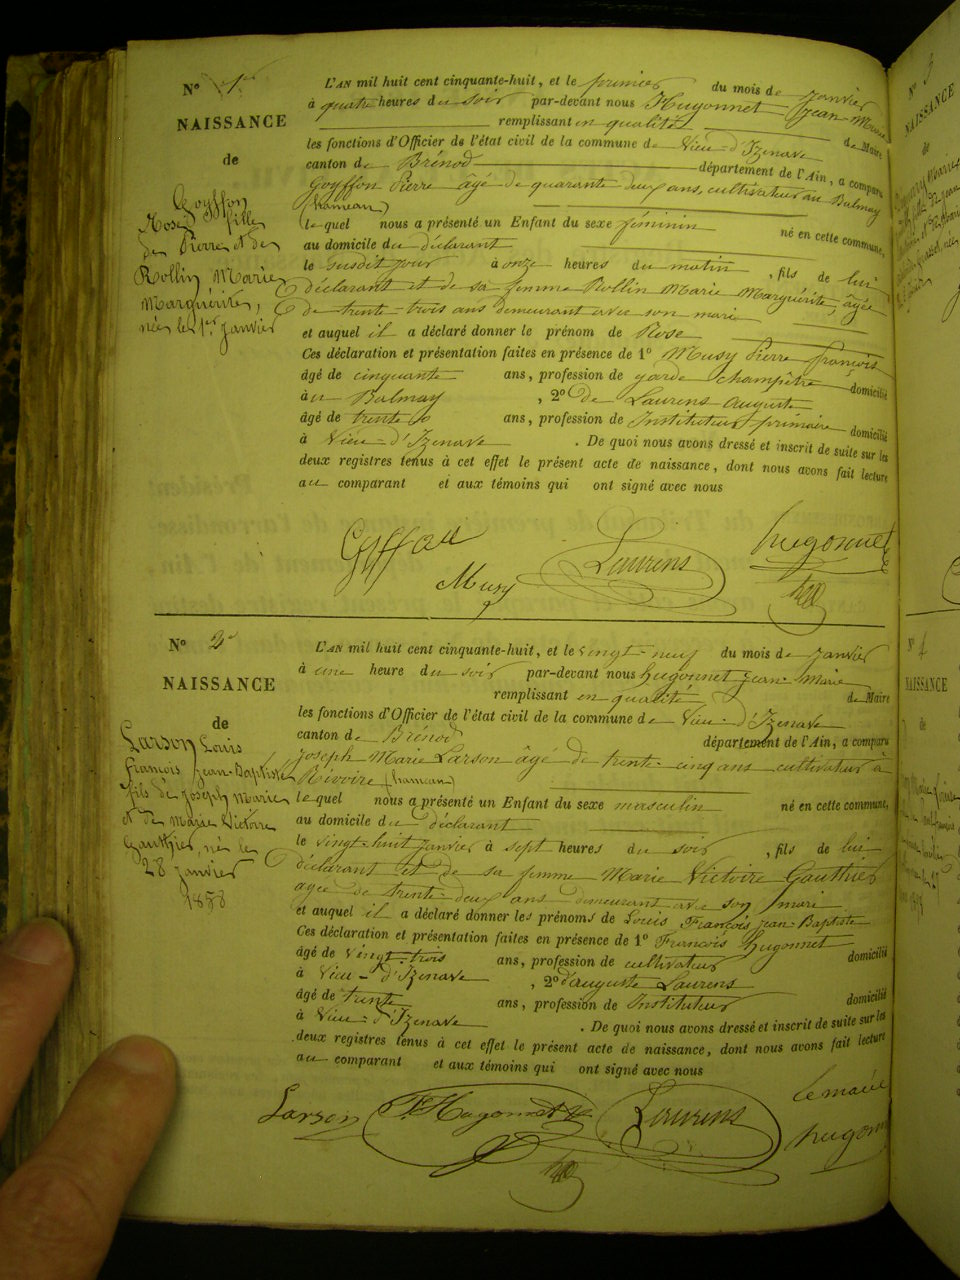 N° 1er
NAISSANCE
de
Goyffon
Rose, fille
de Pierre et de
Rollin, Marie
Marguerite,
née le 1er janvier
L'AN mil huit cent cinquante-huit, et le premier du mois de janvier
à quatre heures du soir par-devant nous Hugonnet Jean-Marie
remplissant en qualité de Maire
les fonctions d'Officier de l'état civil de la commune de Vieu-d'Izenave
canton de Brénod département de l'Ain, a comparu
Goyffon Pierre âgé de quarante deux ans, cultivateur au Balmay
(hameau)
lequel nous a présenté un Enfant du sexe féminin né en cette commune,
au domicile du déclarant
le susdit jour à onze heures du matin, fils de lui
déclarant et de sa femme Rollin Marie Marguérite, âgée
de trente-trois ans demeurant avec son mari
et auquel il a déclaré donner le prénom de Rose
Ces déclaration et présentation faites en présence de 1° Musy Pierre françois
âgé de cinquante ans, profession de garde champêtre domicilié
au Balmay, 2° de Laurens Auguste
âgé de trente ans, profession de Instituteur primaire domicilié
à Vieu-d'Izenave. De quoi nous avons dressé et inscrit de suite sur les
deux registres tenus à cet effet le présent acte de naissance, dont nous avons fait lecture
au comparant et aux témoins qui ont signé avec nous
Goyffon
Musy
Laurens
hugonnet
N° 2e
NAISSANCE
de
Larson Louis
françois Jean-Baptiste
fils de Joseph Marie
et de Marie Victoire
Gauthier, né le
28 janvier
1858
L'AN mil huit cent cinquante-huit, et le vingt-neuf du mois de janvier
à une heure du soir par-devant nous hugonnet Jean-Marie
remplissant en qualité de Maire
les fonctions d'Officier de l'état civil de la commune de Vieu-d'Izenave
canton de Brénod département de l'Ain, a comparu
Joseph Marie Larson âgé de trente-cinq ans cultivateur à
Révoire (hameau)
lequel nous a présenté un Enfant du sexe masculin né en cette commune,
au domicile du déclarant
le vingt-huit janvier à sept heures du soir, fils de lui
déclarant et de sa femme Marie Victoire Gauthier
agée de trente-deux ans demeurant avec son mari
et auquel il a déclaré donner les prénoms de Louis François Jean-Baptiste
Ces déclaration et présentation faites en présence de 1° François hugonnet
âgé de vingt-trois ans, profession de cultivateur domicilié
à Vieu-d'Izenave, 2° d'auguste Laurens
âgé de trente ans, profession de Instituteur domicilié
à Vieu-d'Izenave. De quoi nous avons dressé et inscrit de suite sur les
deux registres tenus à cet effet le présent acte de naissance, dont nous avons fait lecture
au comparant et aux témoins qui ont signé avec nous
Larson
F Hugonnet
Laurens
le maire
hugon
N° 3
NAISSANCE
de
N° 4
NAISSANCE
de